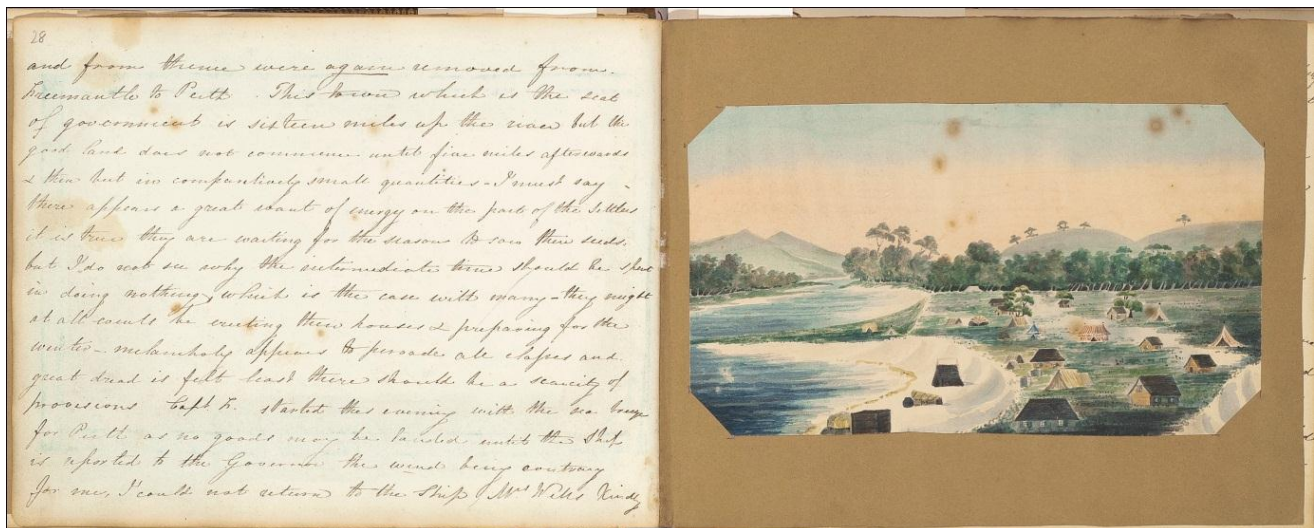 28
and from thence were again removed from
Freemantle to Perth. This town which is the seat
of government is sixteen miles up the river but the
good land does not commence until five miles afterwards
& then but in comparitively small quantities - I must say -
there appears a great want of energy on the part of the settlers
it is true they are waiting for the seasons to sow their seeds.
but I do not see why the intermediate time should be spent
in doing nothing, which is the case with many - they might
at all events be erecting their houses & preparing for the
winter - melancholy appears to pervade all classes and
great dread is felt least there should be a scarcity of
provisions Capt F. started this evening with the sea breeze
for Perth as no goods may be landed until the Ship
is reported to the Governor the wind being contrary
for me, I could not return to the Ship Mrs Wells Kindly